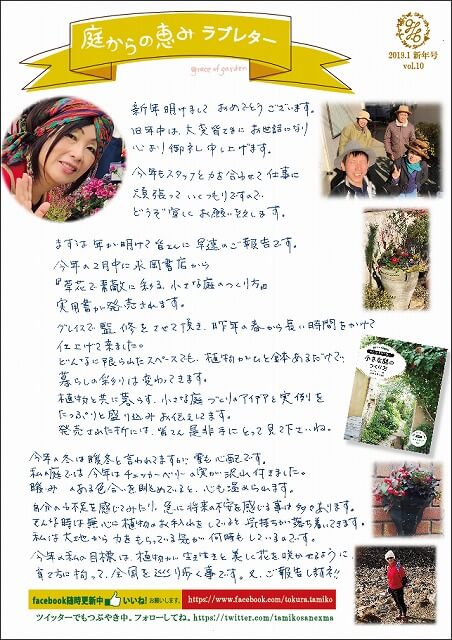 庭からの恵み ラブレター
grace of garden
2019.1 新年号
vol.10
新年明けまして おめでとうございます。
旧年中は、大変皆さまに お世話になり
心より御礼申し上げます。
今年もスタッフと力を合わせて仕事に
頑張って いくつもりですので
どうぞ宜しく お願い致します。
まずは 年が明けて皆さんに 早速のご報告です。
今年の2月中に永岡書店から
『草花で素敵に彩る、小さな庭のつくり方』
実用書が発売されます。
グレイスで監修をさせて頂き、昨年の春から長い時間をかけて
仕上げて来ました。
どんなに限られたスペースでも、植物がひと鉢あるだけで、
暮らしの彩りは変わってきます。
植物と共に暮らす、小さな庭づくりのアイデアと実例を
たっぷりと盛り込み お伝えしてます。
発売された折には、皆さん是非手にとって見て下さいね。
小さな庭の
つくり方
今年の冬は暖冬と言われてますが、雪も心配です。
私の庭では今年はチェッカーベリーの実が沢山付きました。
暖かみのある色合いを眺めていると、心も温められます。
自分の力不足を感じてみたり、急に将来の不安を感じる事は多々あります。
そんな時は無心に植物のお手入れをしていると 気持ちが落ち着いてきます。
私は大地から力をもらっている気が何時もしているのです。
今年の私の目標は、植物が生き生きと美しく花を咲かせるように
育て方に拘って、全国を巡り歩く事です。又、ご報告しますネ!!
facebook随時更新中 いいね! お願いします。 https://www.facebook.com/tokura.tamiko
ツイッターでもつぶやき中。フォローしてね。https://twitter.com/tamikosanexms